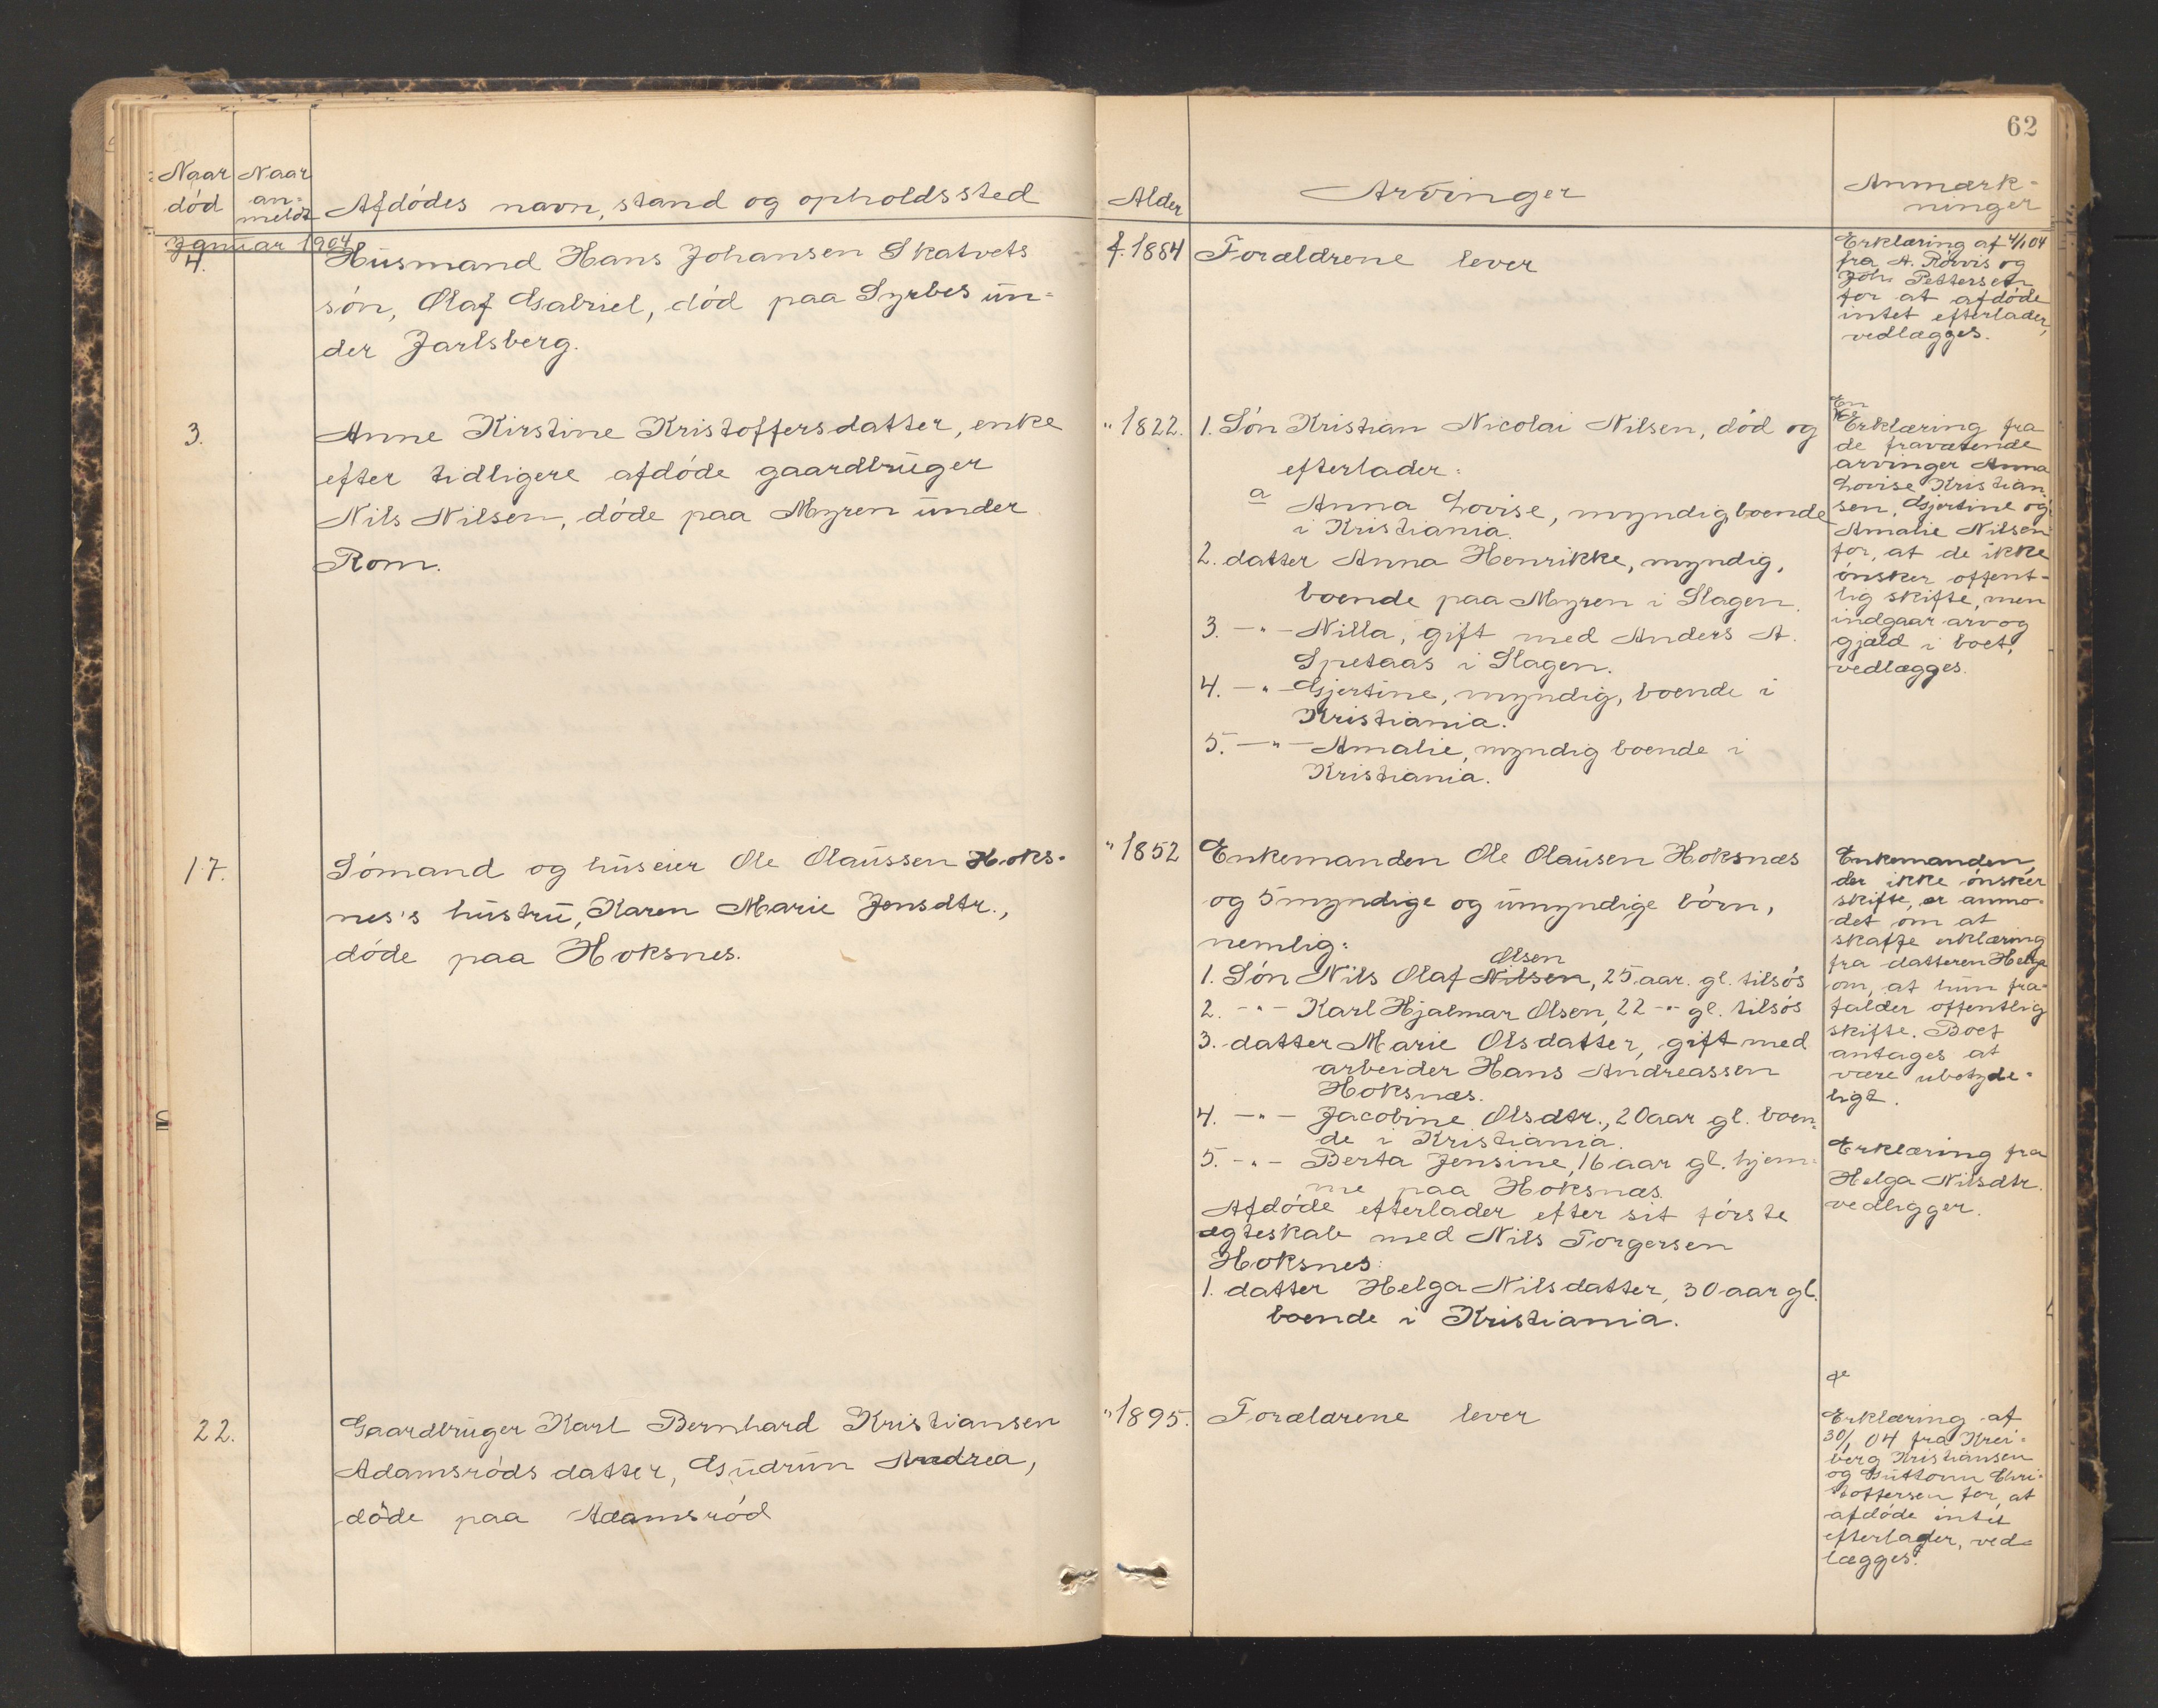 62
Naar død
Naar an-meldt
Afdødes navn, stand og opholdssted
Alder
Arvinger
Anmærk-
ninger
Januar 1904
4.
Husmand Hans Johansen Skatvets
søn, Olaf Gabriel, död paa Syrbes un-
der Jarlsberg.
f. 1884
Forældrene lever
Erklæring af 4/1 04
fra A. Rövis og
Joh. Pettersen
for at afdöde
intet efterlader,
vedlægges.
3.
Anne Kirstine Kristoffersdatter, enke
efter tidligere afdöde gaardbruger
Nils Nilsen, döde paa Myren under
Rom.
" 1822.
1. Sön Kristian Nicolai Nilsen, död og
efterlader:
a Anna Lovise, myndig, boende
i Kristiania.
2. datter Anna Henrikke, myndig,
boende paa Myren i Slagen.
3. -"- Nilla, gift med Anders A.
Spetaas i Slagen.
4. -"- Gjertine, myndig, boende i
Kristiania.
5. -"- Amalie, myndig boende i
Kristiania.
En
Erklæring fra
de fraværende
arvinger Anna
Lovise Kristian-
sen, Gjertine og
Amalie Nilsen
for, at de ikke
önsker offent-
lig skifte, men
indgaar arv og
gjæld i boet,
vedlægges.
17.
Sömand og huseier Ole Olaussen Hoks-
nes's hustru, Karen Marie Jensdtr.,
döde paa Hoksnes.
" 1852
Enkemanden Ole Olausen Hoksnæs
og 5 myndige og umyndige börn,
nemlig:
Olsen
1. Sön Nils Olaf Nilsen, 25 aar. gl. tilsös
2. -"- Karl Hjalmar Olsen, 22 -"- gl. tilsös
3. datter Marie Olsdatter, gift med
arbeider Hans Andreassen
Hoksnæs.
4. -"- Jacobine Olsdtr., 20 aar gl. boen-
de i Kristiania.
5. -"- Berta Jensine, 16 aar gl. hjem-
me paa Hoksnæs.
Afdöde efterlader efter sit förste
ægteskab med Nils Torgersen
Hoksnes:
1. datter Helga Nilsdatter, 30 aar gl.
boende i Kristiania.
Enkemanden,
der ikke önsker
skifte, er anmo-
det om at
skaffe erklæring
fra datteren Helga
om, at hun fra-
falder offentlig
skifte. Boet
antages at
være ubetyde-
ligt.
Erklæring fra
Helga Nilsdtr.
vedligger.
22.
Gaardbruger Karl Bernhard Kristiansen
Adamsröds datter, Gudrun Andrea,
döde paa Adamsröd
" 1895.
Forældrene lever
Erklæring af
30/1 04 fra Krei-
berg Kristiansen
og Guttorm Chri-
stoffersen for, at
afdöde intet
efterlader, ved-
lægges.